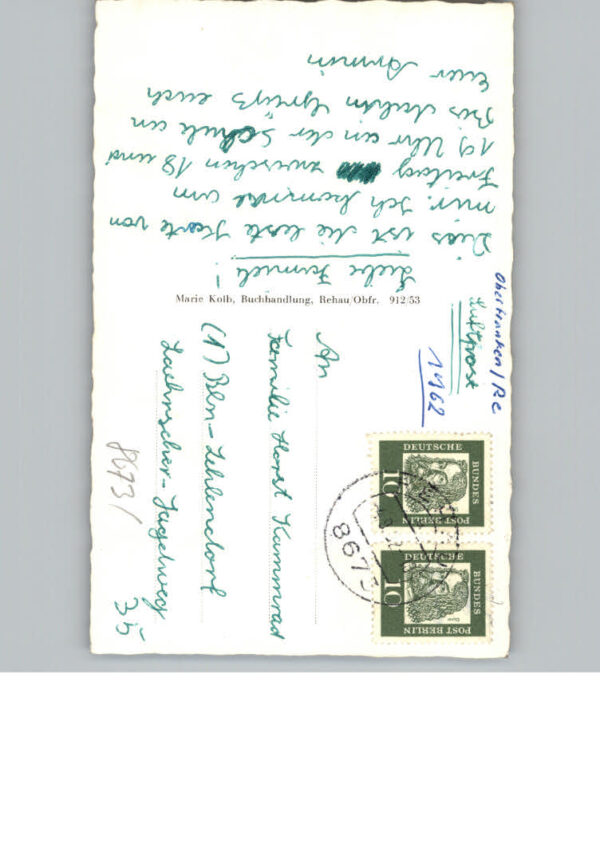 Liebe Famile!
Dies ist die letzte Karte von
mir. Ich komme am
Freitag zwischen 18 und
19 Uhr an der Schule an
Bis dahin Grüßt euch
Euer Armin
Marie Kolb, Buchhandlung, Rehau/Obfr. 912/53
Oberfranken / Re
Luftpost
1962
An
Familie Horst Kammrad
(1) Bln-Zehlendorf
Laehrscher-Jagdweg
35
8673/
DEUTSCHE
BUNDES
POST BERLIN
10
DEUTSCHE
BUNDES
POST BERLIN
10
8673